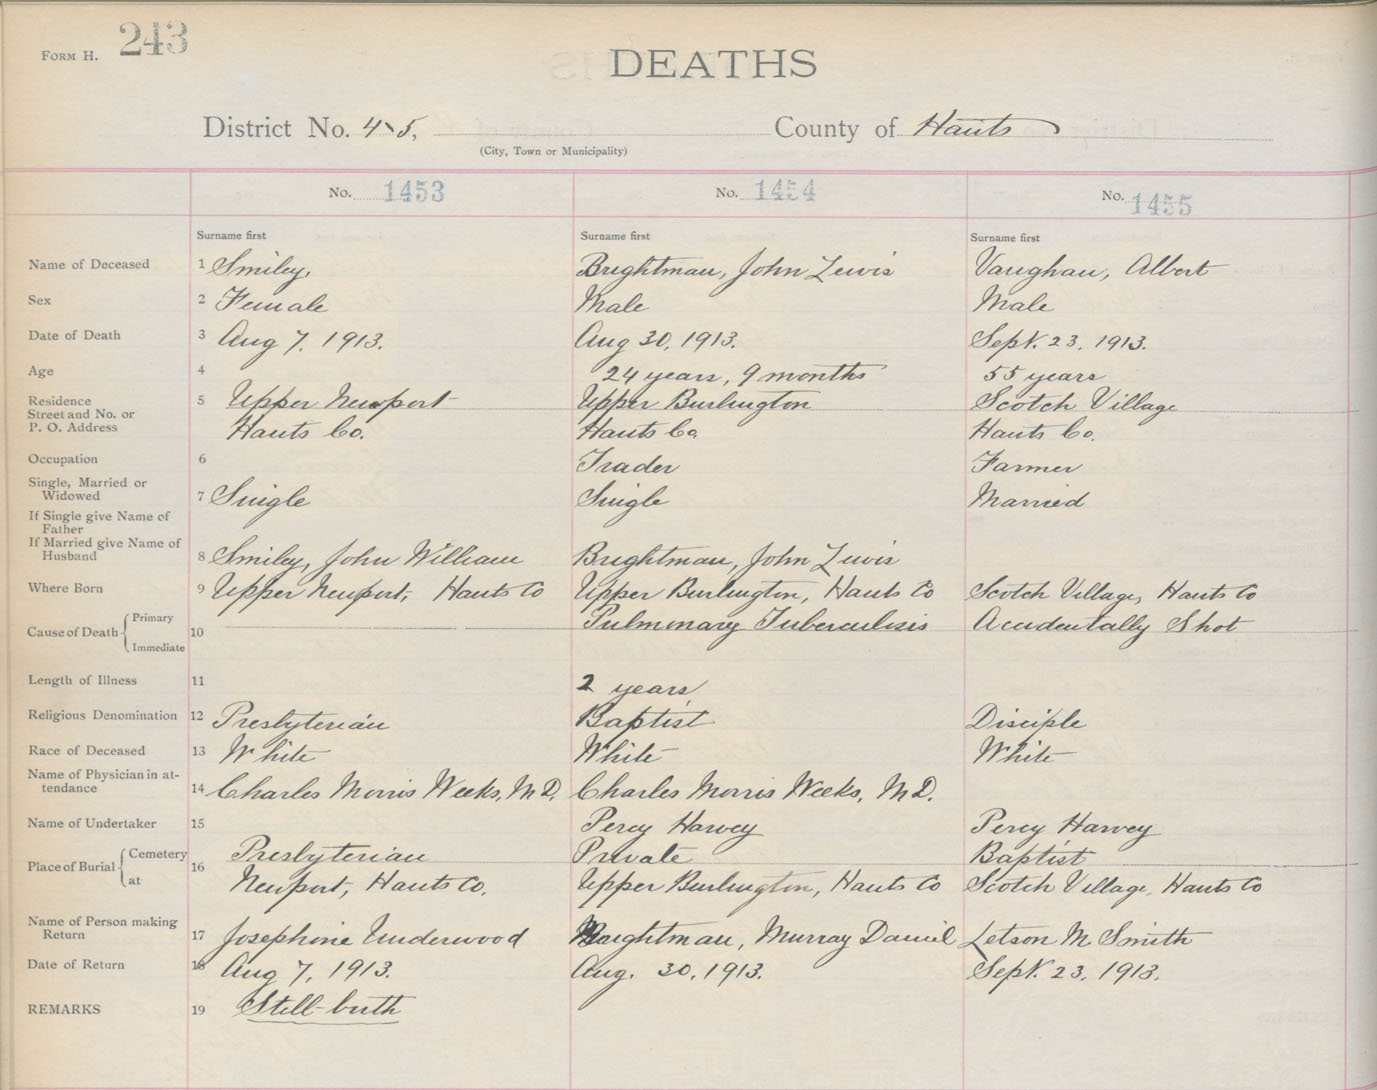 FORM H. 243
DEATHS
District No. 4-5, County of Hants
(City, Town or Municipality)
No. 1453 No. 1454 No. 1455
Surname first Surname first Surname first
Name of Deceased 1 Smiley, Brightman, John Lewis Vaughan, Albert
Sex 2 Female Male Male
Date of Death 3 Aug 7. 1913. Aug 30, 1913. Sept. 23, 1913.
Age 4 24 years, 9 months 55 years
Residence 5 Upper Newport Upper Burlington Scotch Village
Street and No. or
P. O. Address Hants Co. Hants Co. Hants Co.
Occupation 6 Trader Farmer
Single, Married or
Widowed 7 Single Single Married
If Single give Name of
Father
If Married give Name of
Husband 8 Smiley, John William Brightman, John Lewis
Where Born 9 Upper Newport, Hants Co Upper Burlington, Hants Co Scotch Village, Hants Co
Cause of Death Primary 10 Pulmonary Tuberculosis Accidentally Shot
Immediate
Length of Illness 11 2 years
Religious Denomination 12 Presbyterian Baptist Disciple
Race of Deceased 13 White White White
Name of Physician in at-
tendance 14 Charles Morris Weeks, M.D. Charles Morris Weeks, M.D.
Name of Undertaker 15 Percy Harvey Percy Harvey
Place of Burial Cemetery 16 Presbyterian Private Baptist
at Newport, Hants Co. Upper Burlington, Hants Co Scotch Village, Hants Co
Name of Person making
Return 17 Josephine Underwood Brightman, Murray Daniel Letson M. Smith
Date of Return 18 Aug 7, 1913. Aug. 30, 1913. Sept. 23, 1913.
REMARKS 19 Still-birth